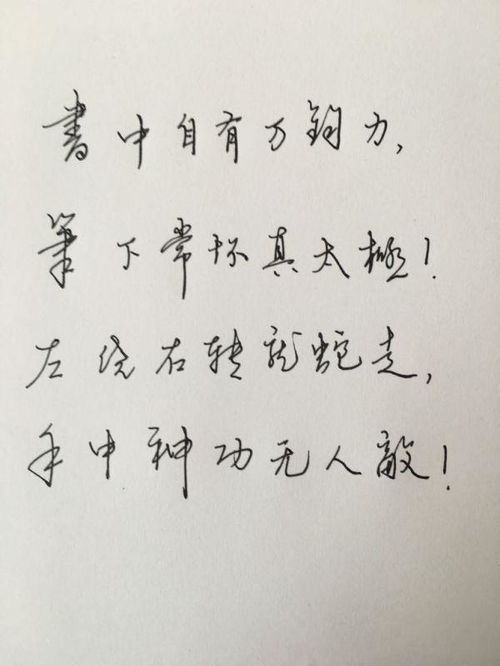 書中自有万鈞力,
筆下常怀真太極!
左绕右转龙蛇走,
手中神功无人敌!